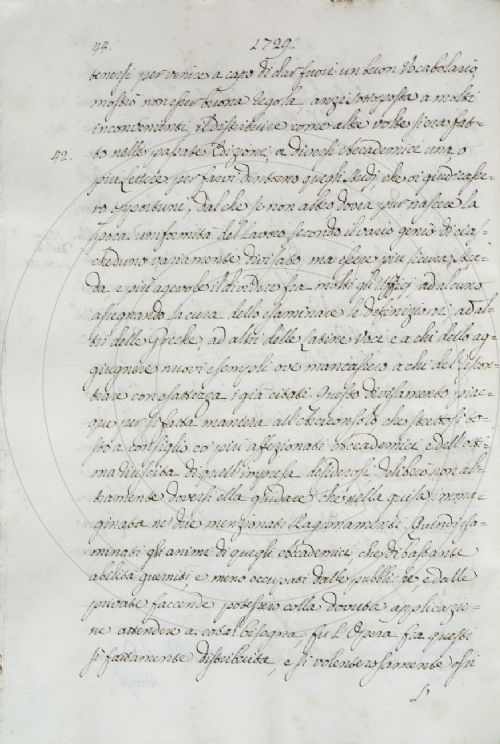 44. 1729.
tenersi per venire a capo di dar fuori un buon Vocabolario,
mostrò non esser buona regola, anzi sottoposta a molti
inconvenienti, il distribuire come altre volte si era fat-
42. to nelle passate Edizioni, a diversi Accademici una, o
più Lettere per farvi dintorno quegli studj, che vi giudicasse-
ro opportuni, dal che se non altro dovea pur nascere la
poca uniformità del lavoro secondo il vario genio di cia-
scheduno variamente divisato ma essere più sicura stra-
da e più agevole il dividere fra molti gli Uffizj, ad alcuno
assegnando la cura dello esaminare le Definizioni, ad al-
tri delle Greche, ad altri delle Latine Voci e a chi dello ag-
giugnere nuovi esempli ove mancassero a chi del riscon-
trare con esattezza i già citati. Questo divisamento piac-
que per sì fatta maniera all'Arciconsolo che strettosi to-
sto a consiglio co' più affezionati Accademici e dell'otti-
ma riuscita di quell'impresa desiderosi deliberò non al-
tramente doversi ella guidare che nella guisa imma-
ginata ne' due menzionati Ragionamenti. Quindi esa-
minati gli animi di quegli Accademici, che di bastante
abilità guerniti, e meno occupati dalle pubbliche, e dalle
private faccende potessero colla dovuta applicazio-
ne attendere a cotal bisogna, fu l'Opera fra questi
sì fattamente distribuita, e sì volenterosamente ogni